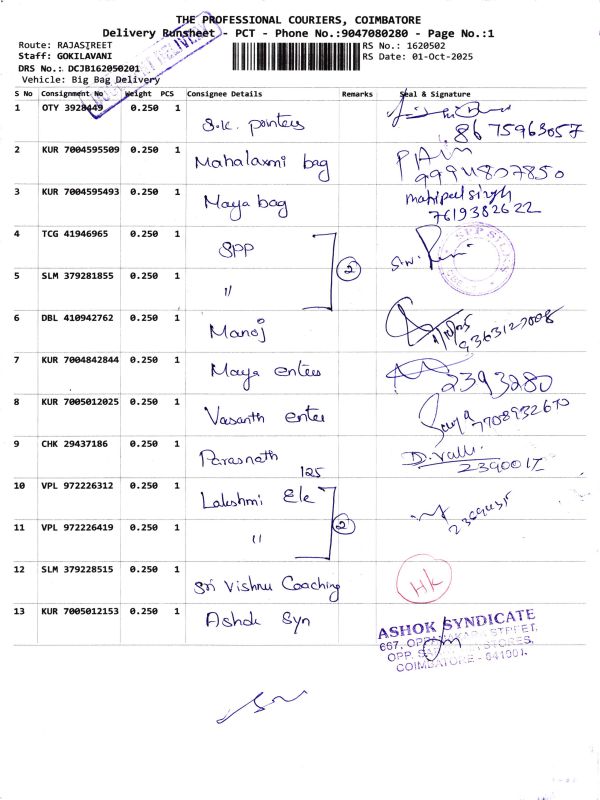 THE PROFESSIONAL COURIERS, COIMBATORE
Delivery Runsheet - PCT - Phone No.:9047080280 - Page No.:1
Route: RAJASTREET RS No.: 1620502
Staff: GOKILAVANI RS Date: 01-Oct-2025
DRS No.: DCJB162050201
Vehicle: Big Bag Delivery
S No Consignment No Weight PCS Consignee Details Remarks Seal & Signature
1 OTY 3928449 0.250 1 S.K. pointers 8675963057
2 KUR 7004595509 0.250 1 Mahalaxmi bag 9994807850
3 KUR 7004595493 0.250 1 Maya bag mahipal singh
7619382622
4 TCG 41946965 0.250 1 SPP SPP SILKS
2
5 SLM 379281855 0.250 1 "
6 DBL 410942762 0.250 1 Manoj
7 KUR 7004842844 0.250 1 Maya enters 2393280
8 KUR 7005012025 0.250 1 Vasanth enter 7708932670
9 CHK 29437186 0.250 1 Parasnath D. Valli
125
10 VPL 972226312 0.250 1 Lakshmi Ele
2
11 VPL 972226419 0.250 1 "
12 SLM 379228515 0.250 1 Sri Vishnu Coaching HK
13 KUR 7005012153 0.250 1 Ashok Syn ASHOK SYNDICATE
COIMBATORE - 641001.